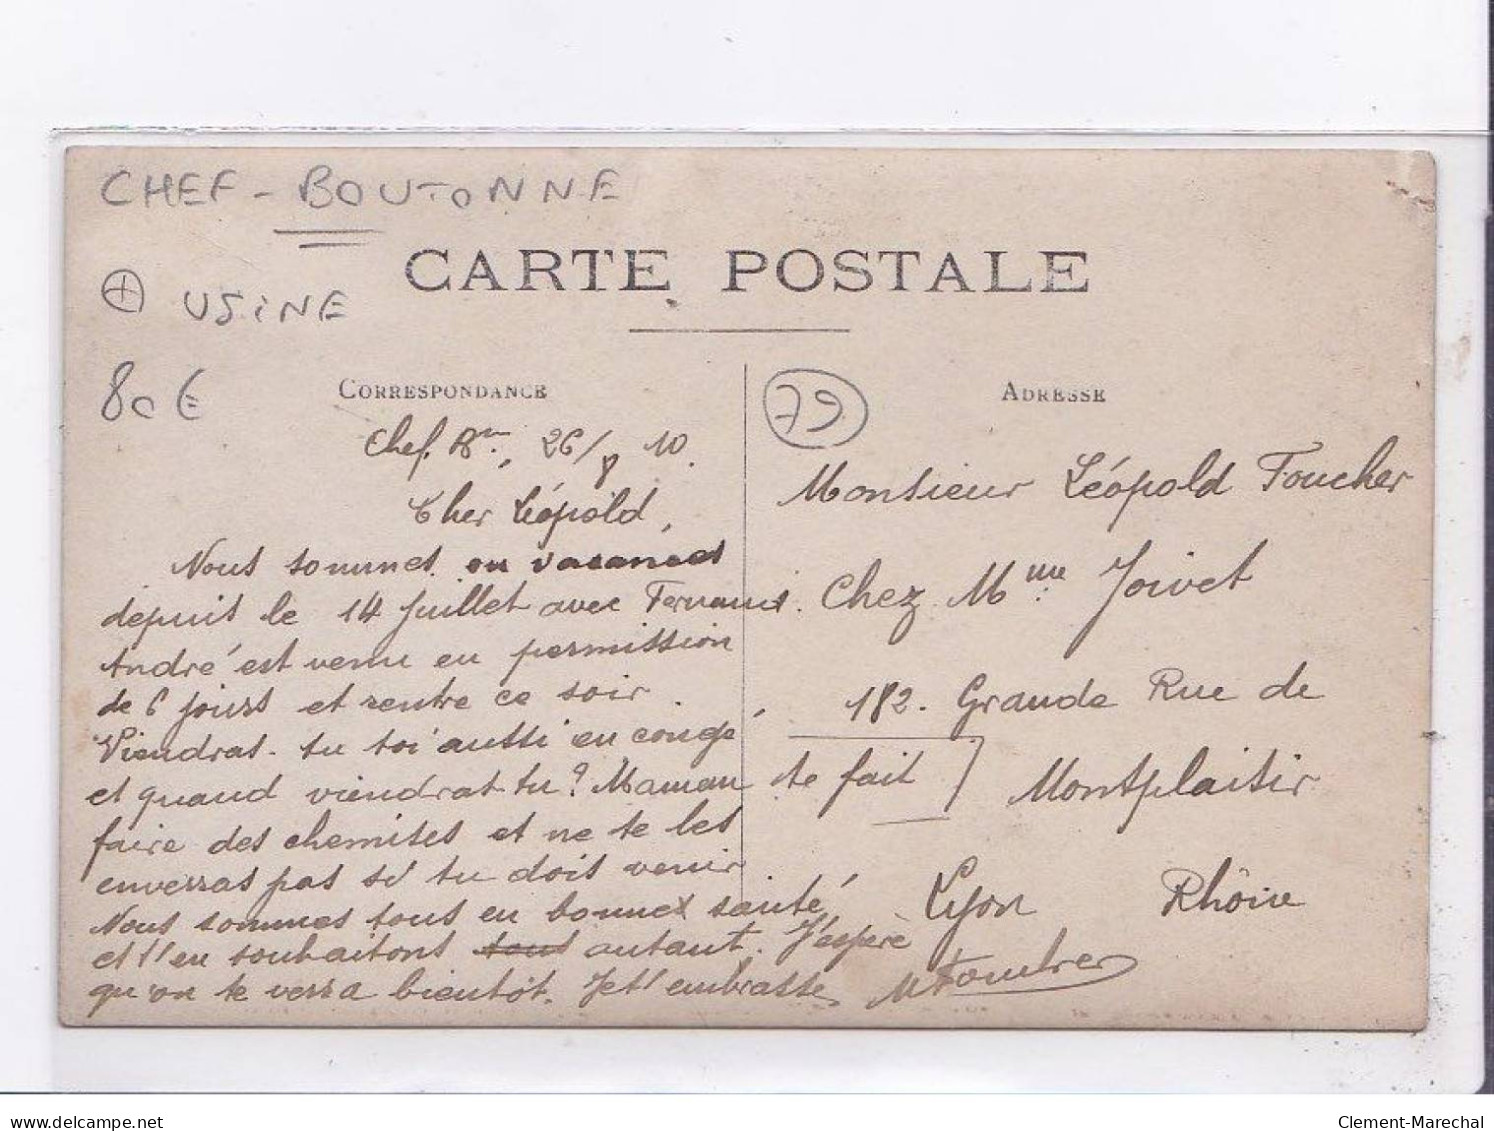 CHEF-BOUTONNE
CARTE POSTALE
⊕ USINE
80€
CORRESPONDANCE
Chef. Bne., 26/8 10.
Cher Léopold,
Nous sommes en vacances
depuis le 14 Juillet avec Fernand.
André est venu en permission
de 6 jours et rentre ce soir
Viendras-tu toi aussi en congé
et quand viendras tu? Maman te fait
faire des chemises et ne te les
enverras pas si tu dois venir
Nous sommes tous en bonnes santé,
et t'en souhaitons tous autant. J'espère
qu'on te verra bientôt. Je t'embrasse,
MFoucher
79
ADRESSE
Monsieur Léopold Foucher
Chez Mme. Joivet
182. Grande Rue de
Montplaisir
Lyon Rhône
delcampe.net
Clement-Marechal